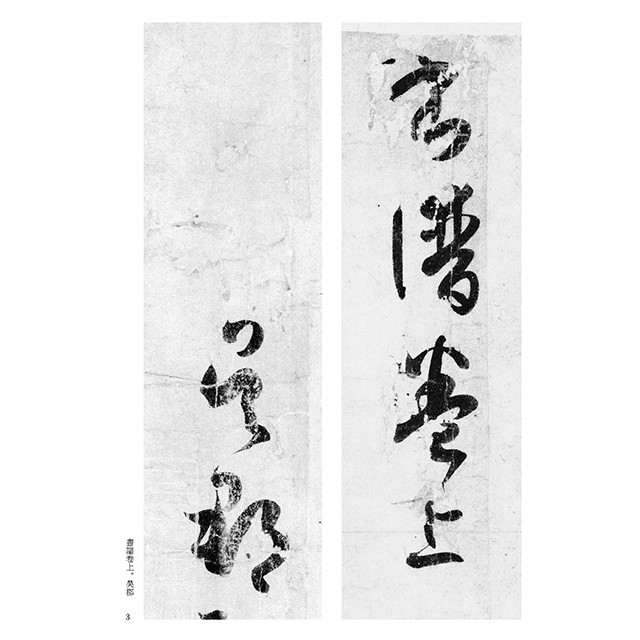 書譜卷上
吳郡
書譜卷上、吳郡
3